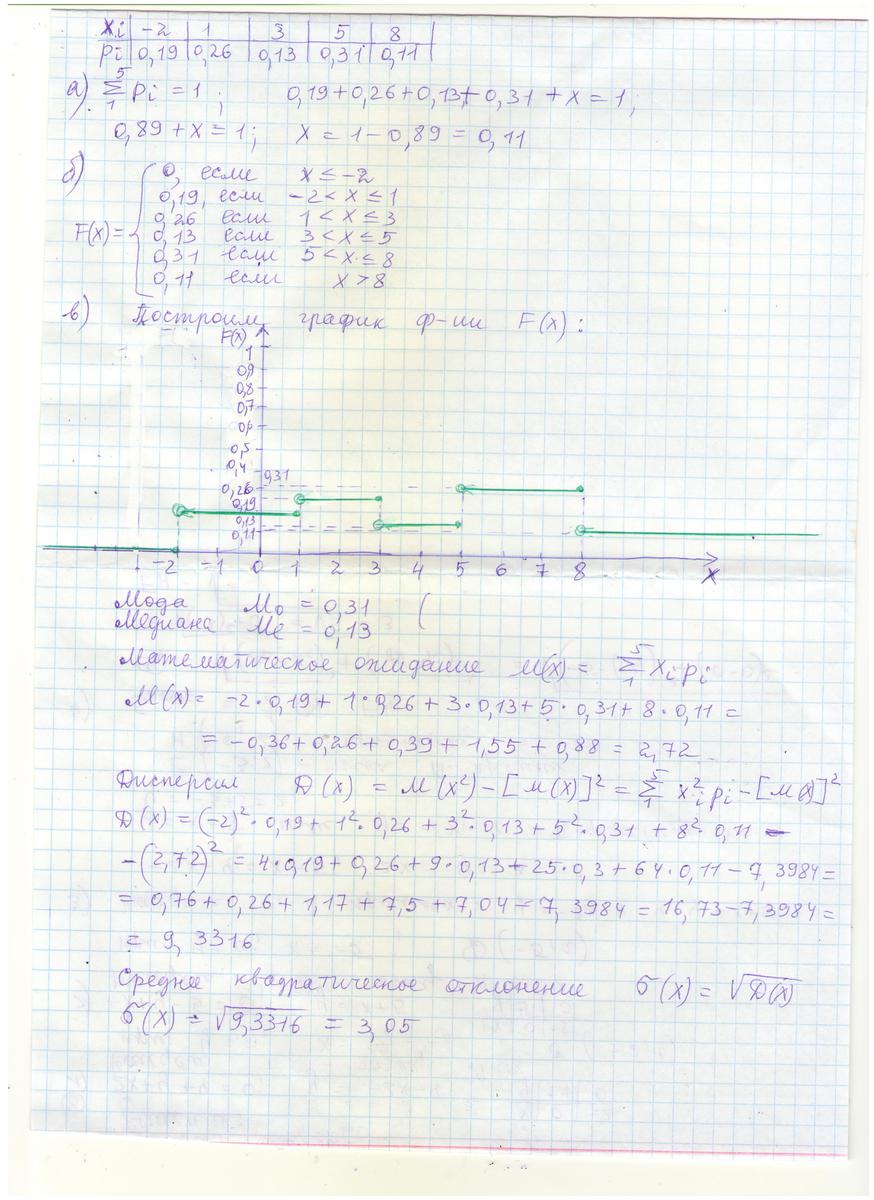 xi | -2 | 1 | 3 | 5 | 8
pi | 0,19 | 0,26 | 0,13 | 0,31 | 0,11
а) 5 Σ 1 pi = 1 ; 0,19+0,26+0,13+0,31+x=1;
0,89+x=1; x=1-0,89=0,11
б)
0, если x≤-2
0,19, если -2<x≤1
0,26 если 1<x≤3
F(x)= 0,13 если 3<x≤5
0,31 если 5<x≤8
0,11 если x>8
в) Построим график ф-ии F(x):
F(x)
1
0,9
0,8
0,7
0,6
0,5
0,4
0,31
0,26
0,19
0,13
0,11
-2 -1 0 1 2 3 4 5 6 7 8 x
Мода Mo = 0,31 (
Медиана Me = 0,13
Математическое ожидание M(x) = 5 Σ 1 xi pi
M(x)= -2·0,19+1·0,26+3·0,13+5·0,31+8·0,11=
= -0,36+0,26+0,39+1,55+0,88=2,72
Дисперсия D(x) = M(x²)-[M(x)]² = 5 Σ 1 x²i pi-[M(x)]²
D(x)=(-2)²·0,19+1²·0,26+3²·0,13+5²·0,31+8²·0,11-
-(2,72)²=4·0,19+0,26+9·0,13+25·0,3+64·0,11-7,3984=
= 0,76+0,26+1,17+7,5+7,04-7,3984=16,73-7,3984=
= 9,3316
Среднее квадратическое отклонение σ(x) = √D(x)
σ(x) = √9,3316 = 3,05